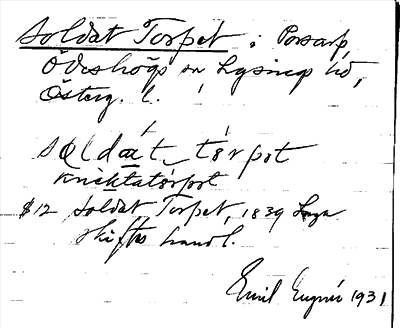 Soldat Torpet i Porsarp,
Ödeshögs sn Lysings hd,
Österg. l.
soldat_torpot
knektatorpot
§12 Soldat Torpet, 1839 Laga
skiftes handl.
Emil Eugnér 1931